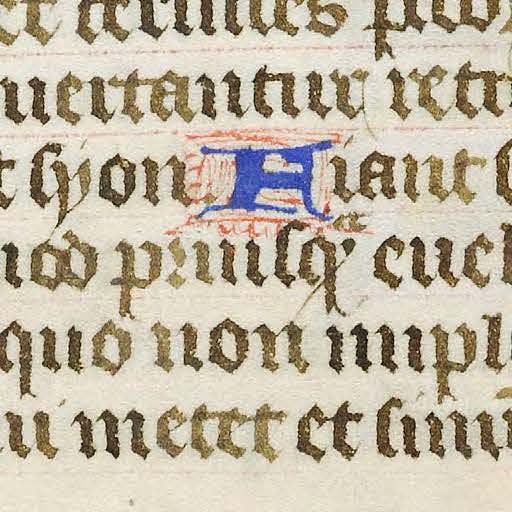 ceruices
uertantur retr
t syon Fiant
uod priusq̃ euel
quo non impl
ui metet et sinu